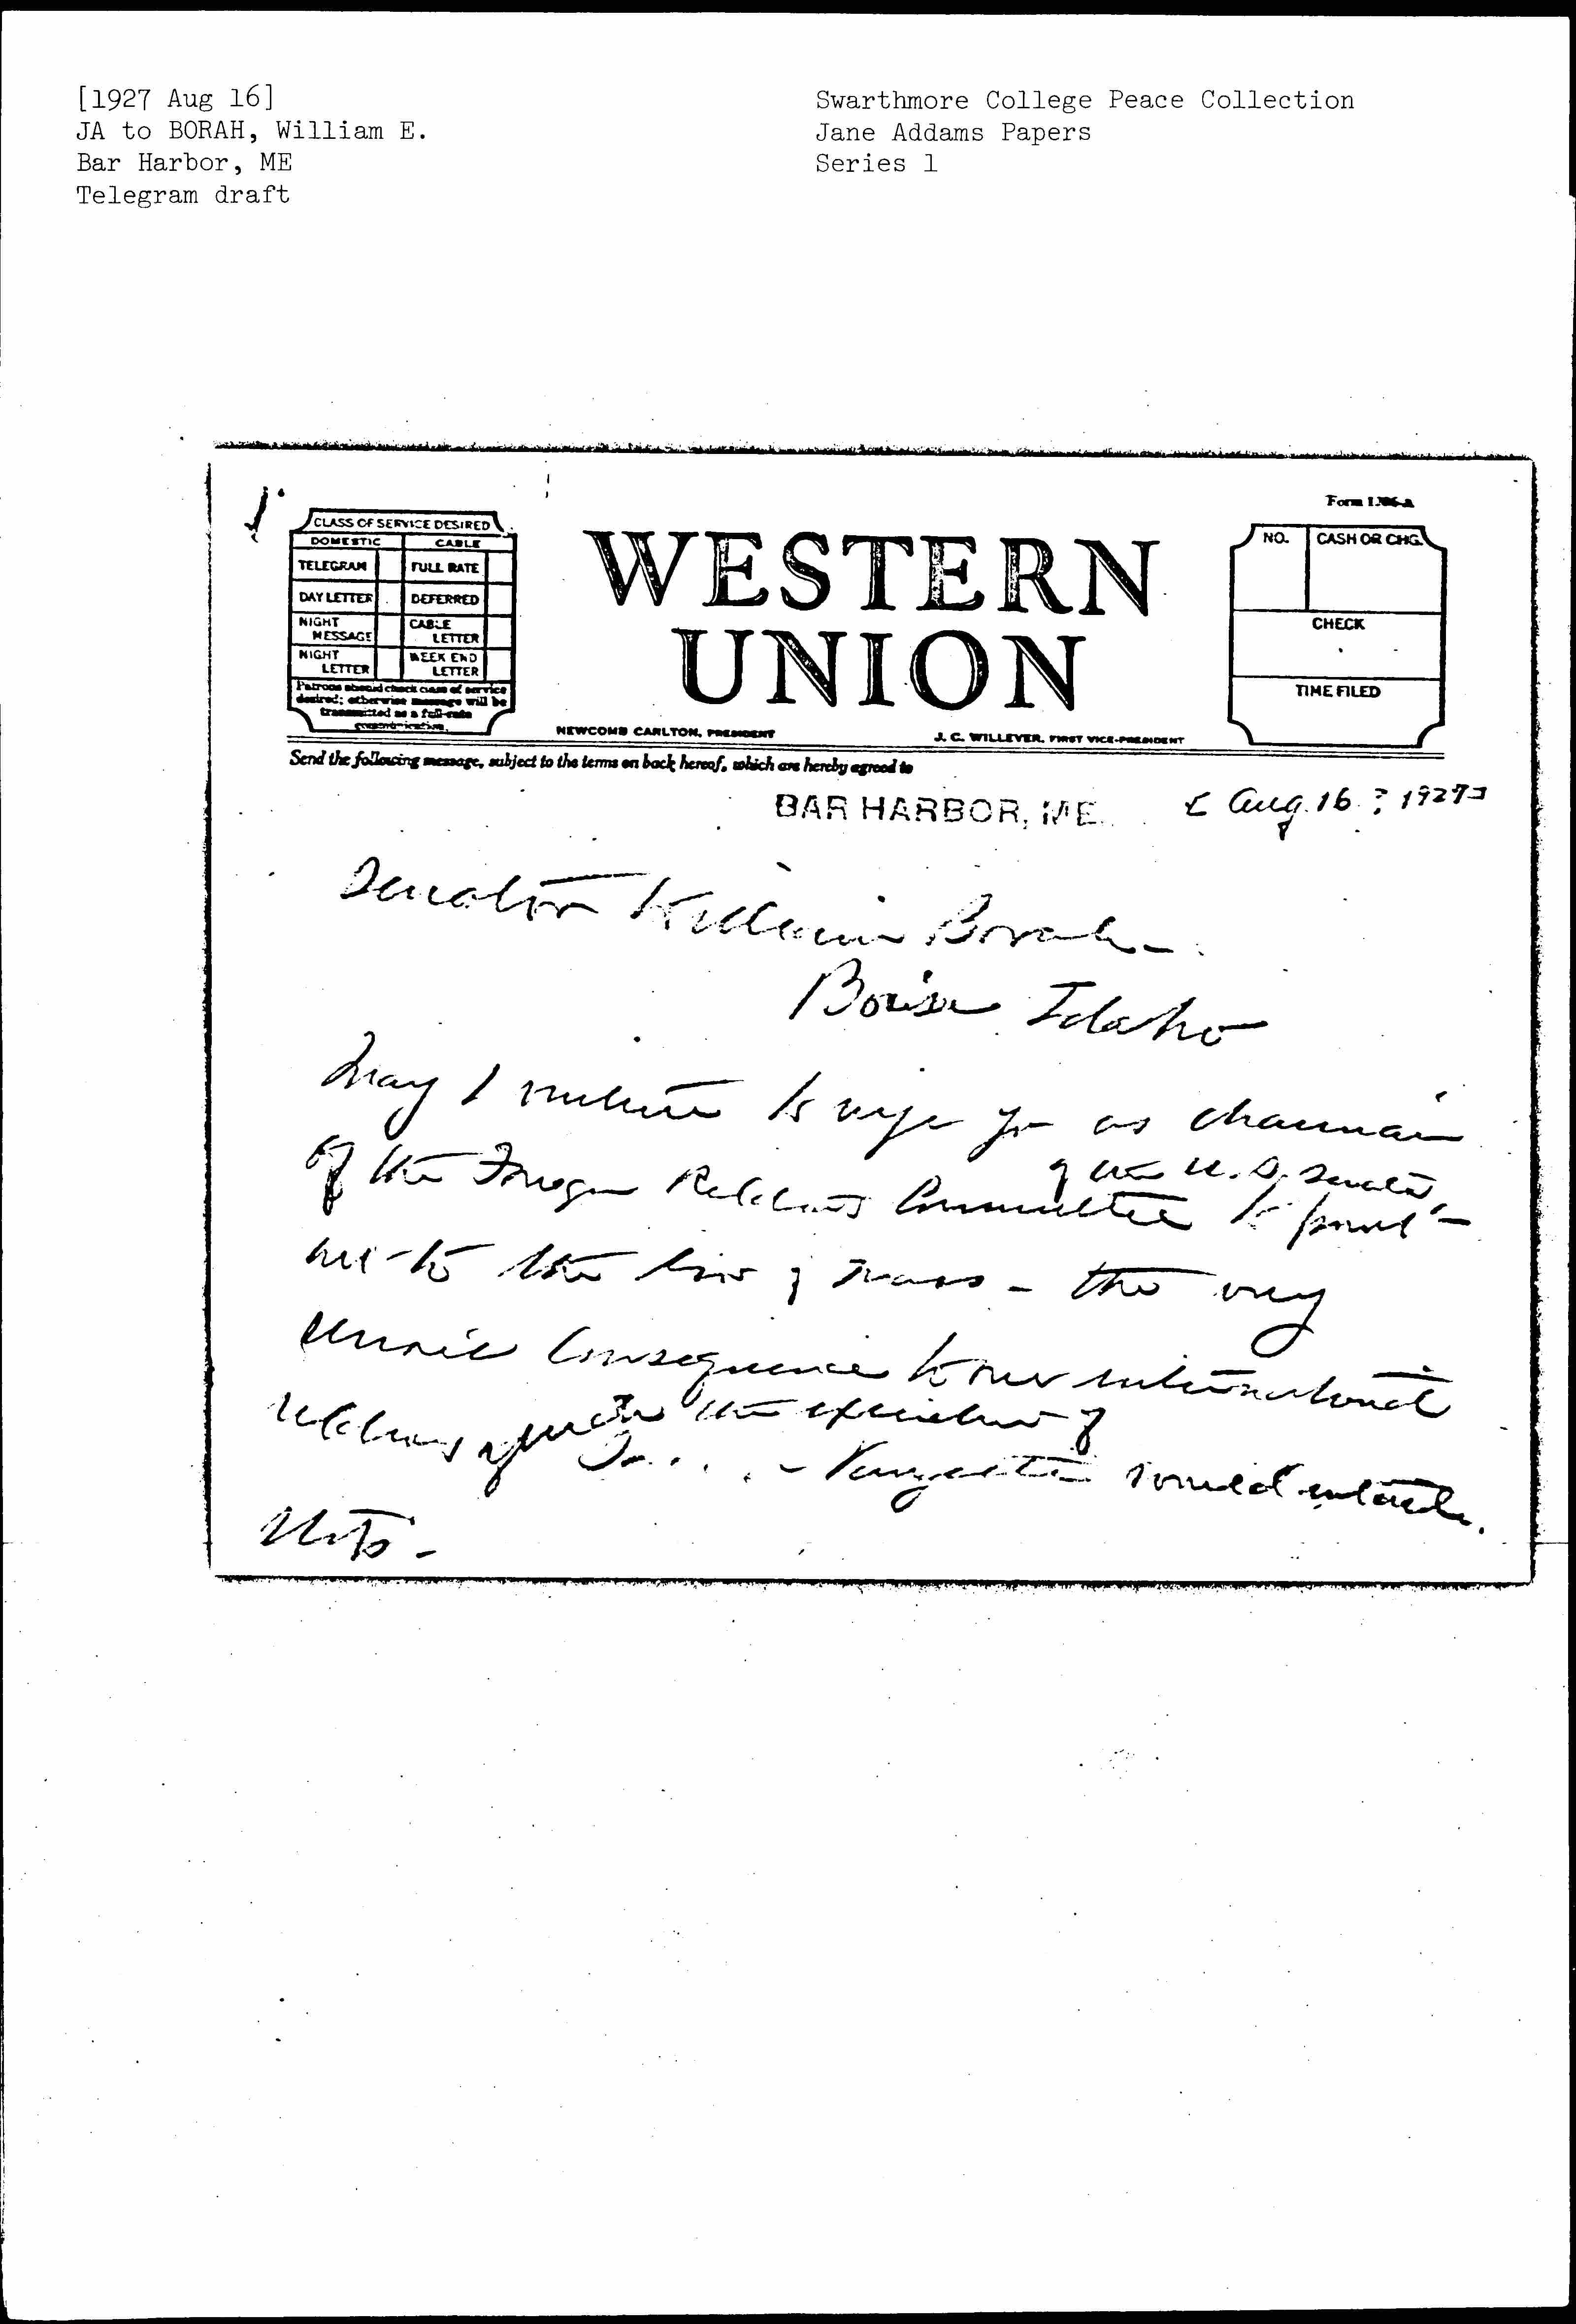 [1927 Aug 16]
JA to BORAH, William E.
Bar Harbor, ME
Telegram draft
Swarthmore College Peace Collection
Jane Addams Papers
Series 1
Form 1206-A
CLASS OF SERVICE DESIRED
DOMESTIC CABLE
TELEGRAM FULL RATE
DAY LETTER DEFERRED
NIGHT MESSAGE CABLE LETTER
NIGHT LETTER WEEK END LETTER
Patrons should check class of service
desired; otherwise message will be
transmitted as a full-rate
communication.
WESTERN
UNION
NEWCOMB CARLTON, PRESIDENT
J. C. WILLEVER, FIRST VICE-PRESIDENT
NO. CASH OR CHG.
CHECK
TIME FILED
Send the following message, subject to the terms on back hereof, which are hereby agreed to
BAR HARBOR, ME. [Aug. 16 ? 1927]
Senator William Borah -
Boise Idaho
May I venture to urge you as chairman
of the U.S. Senate
of the Foreign Relations Committee to point
out to the Gov of Mass - the very
serious consequence to our international
relations after the execution of
Sa... - Vanzetti would